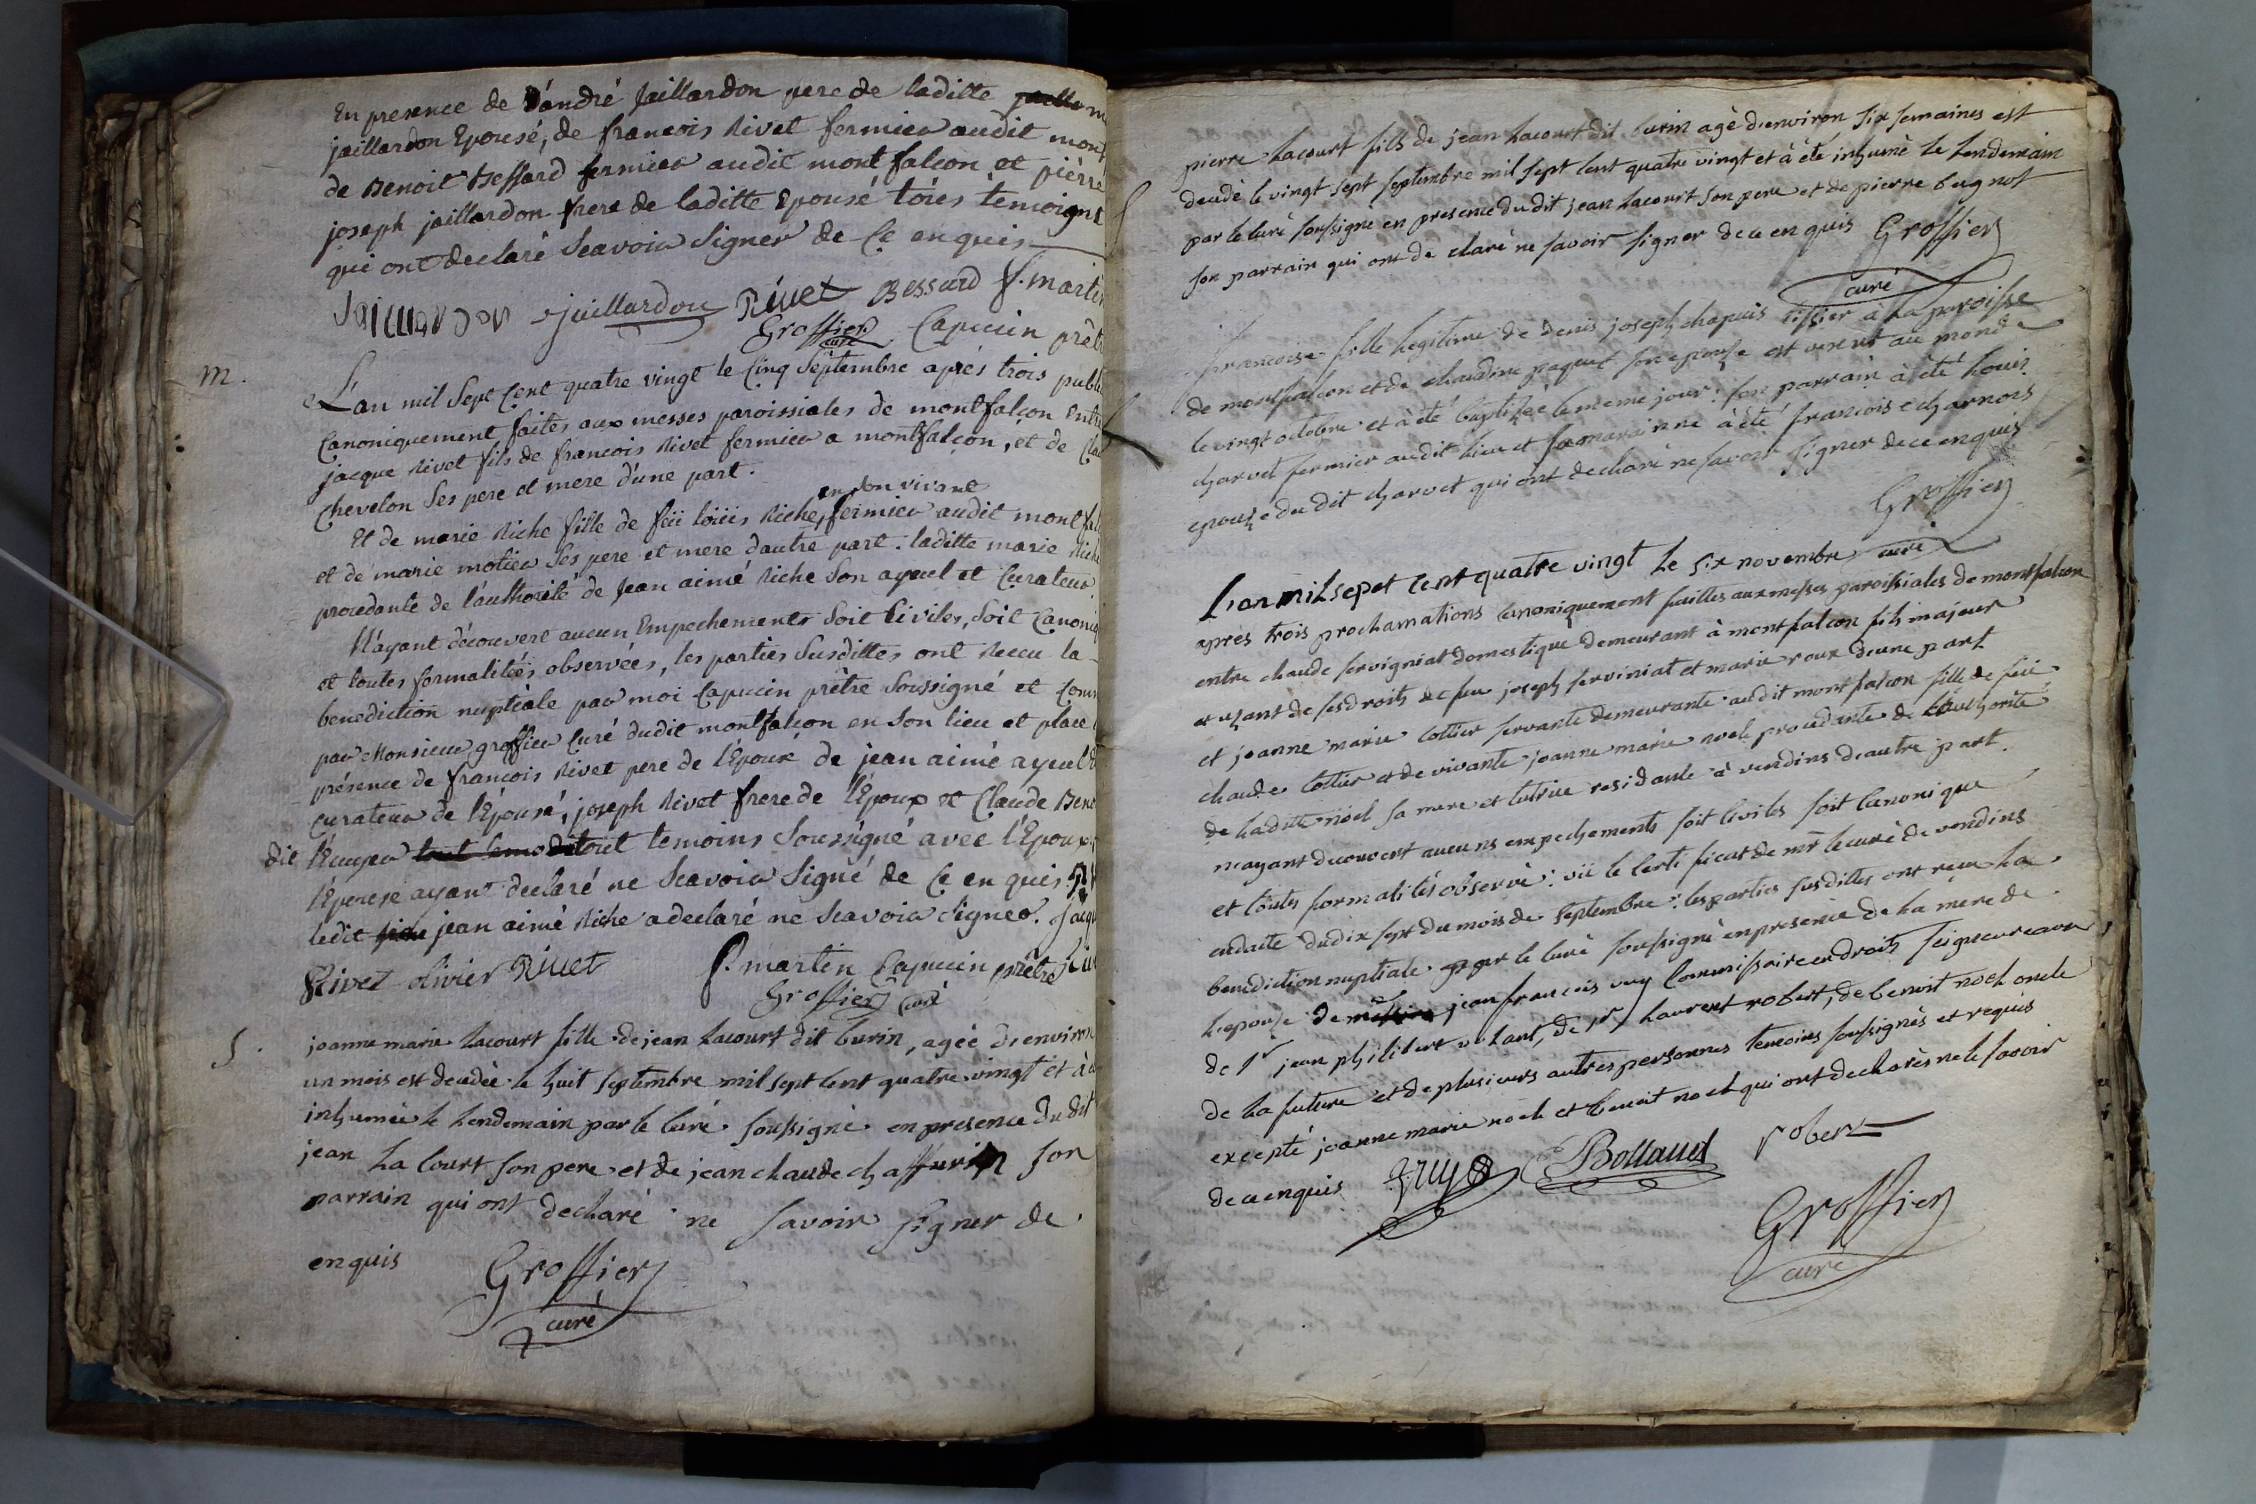 En presence de D'andré Jaillardon pere de laditte
jaillardon Epousé, de francois Rivet fermier audit mont
de Benoit Bessard fermier audit montfalcon et pierre
joseph jaillardon frere de laditte Epousé tóus témoigns
qui ont declaré Scavoir Signer de Ce enquis
Jaillardon jaillardon Rivet Bessard f. martin
Groffier curé Capucin prêt
m.
L'an mil Sept Cent quatre vingt le Cinq Septembre aprés trois publi
Canoniquement faites aux messes paroissiales de montfalcon Entre
jacque Rivet fils de francois Rivet fermier a montfalcon, et de Cla
Chevelon Ses pere et mere d'une part.
en son vivant
Et de marie Riche fille de feü loüis Riche, fermier audit montfal
et de marie motier Ses pere et mere dautre part: laditte marie Riche
procedante de l'authorité de Jean aimé Riche Son ayeul et Curateur
N'ayant découvert aucun Empechements Soit Civiles, Soit Canoniq
et toutes formalitées observées, les parties Susdittes ont Receu la
benediction nuptiale par moi Capucin prètre Soussigné et Com
par Monsieur groffier Curé dudit montfalcon en Son lieu et place
présence de francois Rivet pere de l'Epoux de jean aimé ayeul et
Curateur de l'Epousé, joseph Rivet frere de l'Epoux et Claude Ben
dit l'Ecuyer tout temoins Soussigné avec l'Epoux
l'Epouse ayant declaré ne Scavoir Signé de Ce enquis.
ledit jean aimé Riche a declaré ne Scavoir Signer. Jacqu
Rivet olivier Rivet f. martin Capucin prêtre
Groffier curé
S.
joanne marie Lacourt fille de jean Lacourt dit burin, agée d'environ
un mois est decedée le huit septembre mil sept cent quatre vingt et à é
inhumée le lendemain par le curé soussigné en presence du dit
jean Lacourt son pere et de jean claude chaffurin son
parrain qui ont declaré ne savoir signer de
enquis Groffier
curé
pierre Lacourt fils de jean Lacourt dit burin agé d'environ six semaines est
decedé le vingt sept septembre mil sept cent quatre vingt et à été inhumé le lendemain
par le curé soussigné en presence du dit jean Lacourt son pere et de pierre bugnot
son parrain qui ont declaré ne savoir signer de ce enquis Groffier
curé
francoise fille legitime de denis joseph chapuis tissier a la paroisse
de montfalcon et de claudine paquet son epouse est venüe au monde
le vingt octobre et à été baptisée le meme jour: son parrain à été Louis
charvet fermier audit lieu et sa marainne à été francoise charnois
epouse du dit charvet qui ont declaré ne savoir signer de ce enquis
Groffier
curé
L'an mil sept cent quatre vingt le six novembre
après trois proclamations canoniquement faittes aux messes paroissiales de montfalcon
entre claude servigniat domestique demeurant à montfalcon fils majeur
et usant de ses droits de feu joseph serviniat et marie roux d'une part
et joanne marie cottier servante demeurante audit montfalcon fille de feü
claude cottier et de vivante joanne marie noel procedante de l'authorité
de laditte nöel sa mere et tutrice residante à verdins d'autre part.
n'ayant decouvert aucuns empechements soit civiles soit canonique
et toutes formalités observé: vü le certificat de mr le curé de verdins
en datte du dix sept du mois de septembre: les parties susdittes ont reçu la
benediction nuptiale par le curé soussigné en presence de la mère de
l'epouse de jean francois vuy commissaire en droits seigneureaux
de sr jean philibert volant, de sr laurent robert, de benoit noel oncle
de la future et de plusieurs autres personnes temoins soussignés et requis
excepté joanne marie noel et benoit noel qui ont declarés ne le savoir
de ce enquis Bollaud robert
Groffier
curé